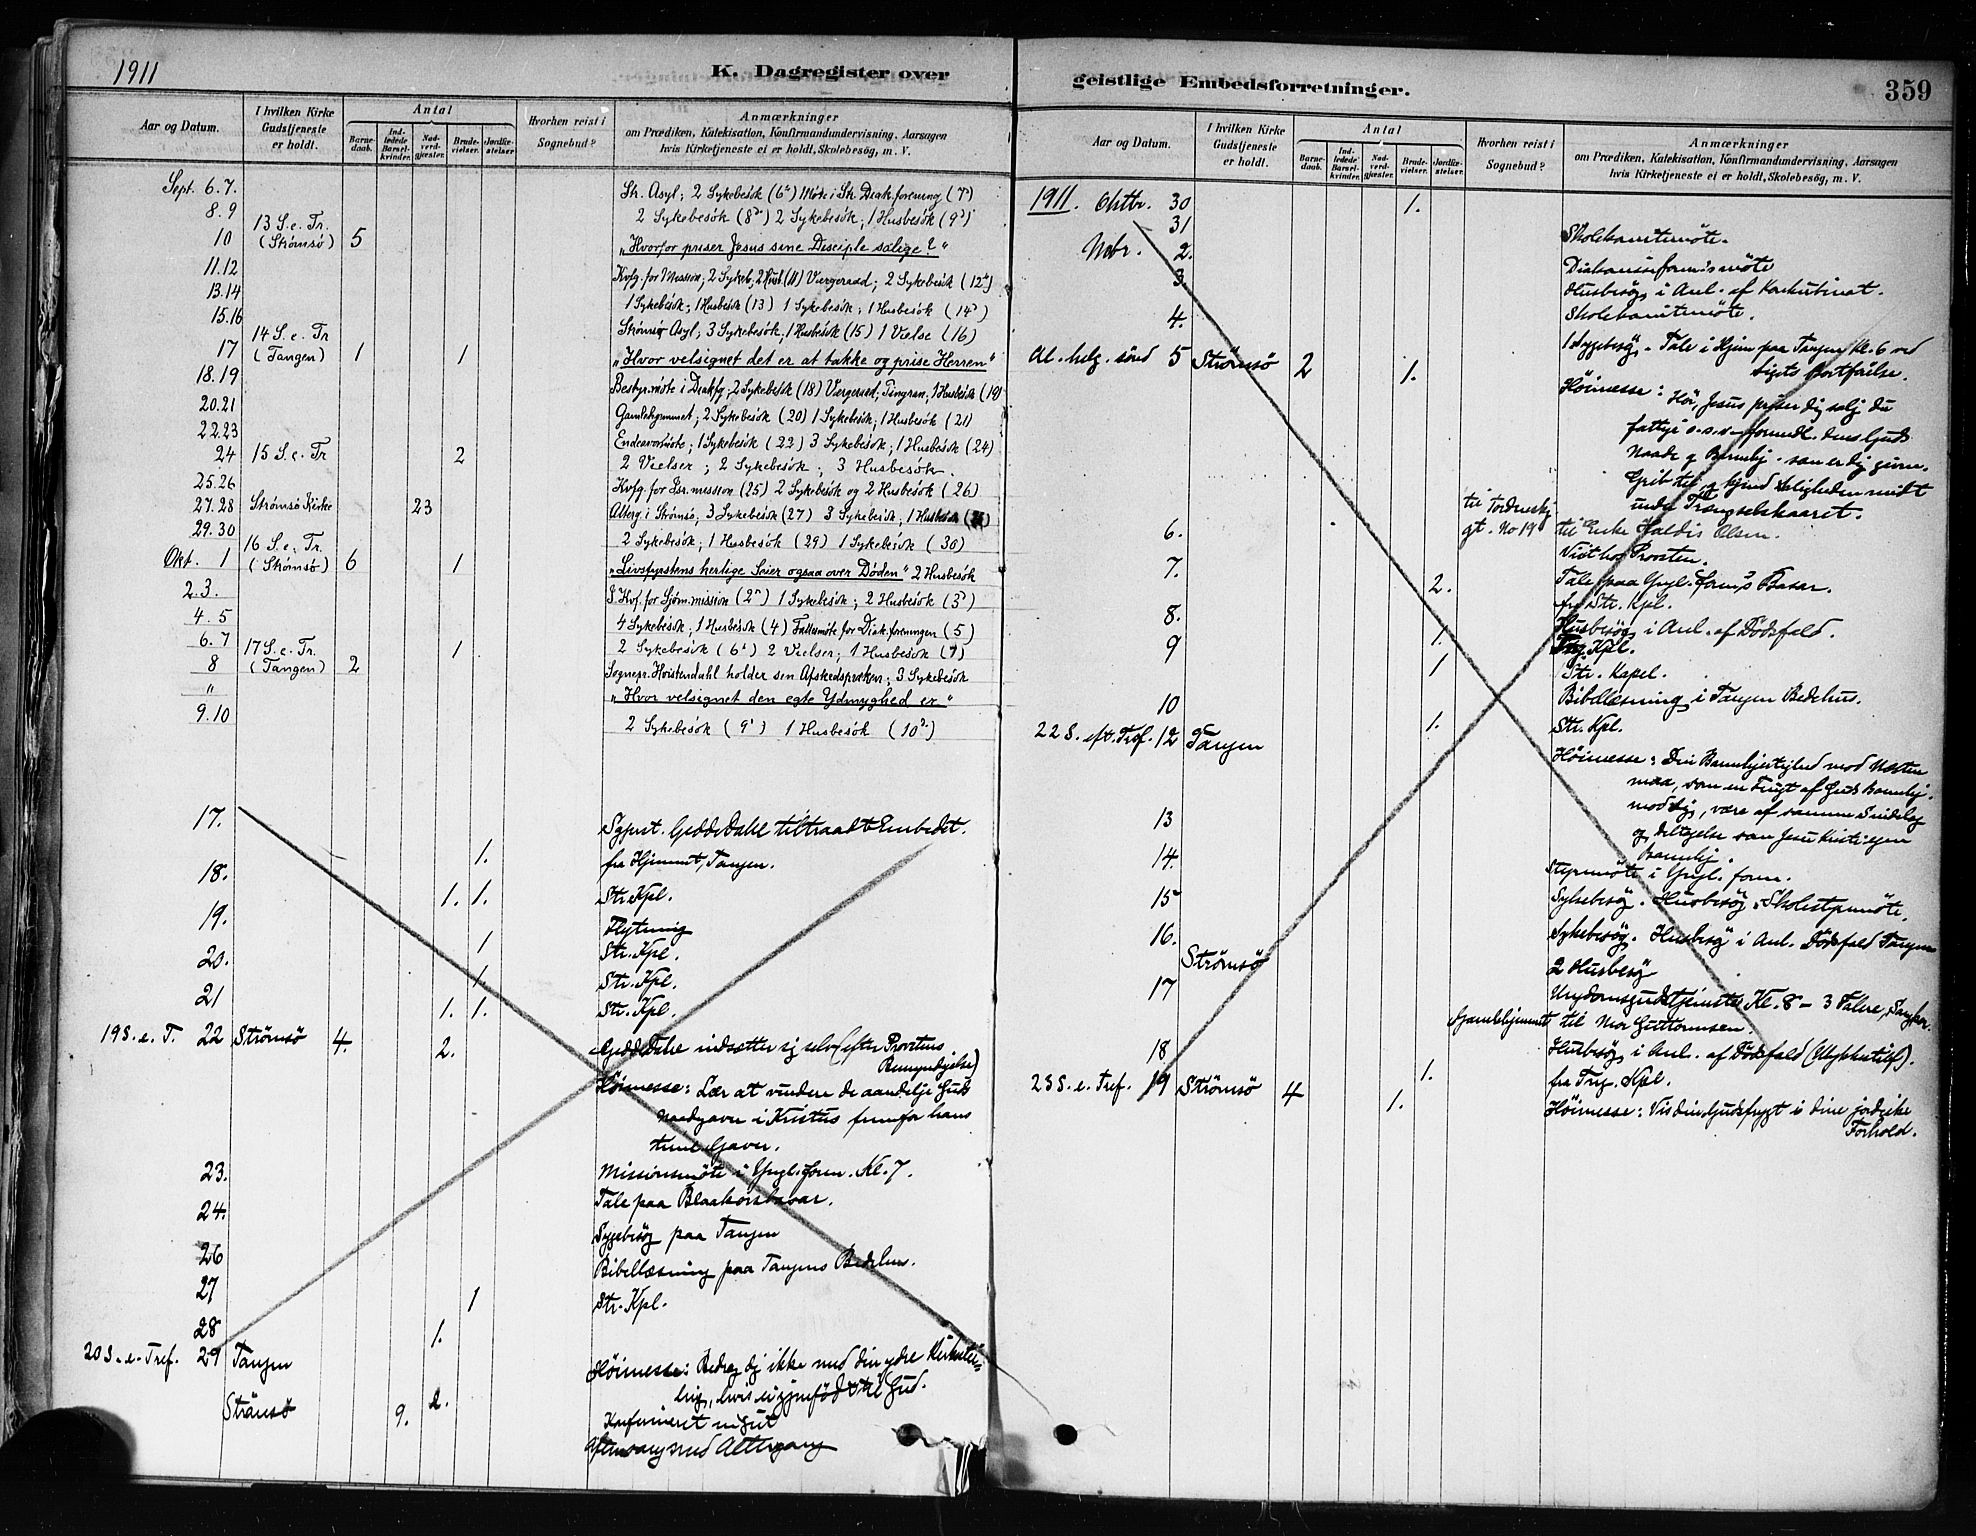 1911
K. Dagregister over
Aar og Datum.
I hvilken Kirke Gudstjeneste er holdt.
Antal
Barnedaab.
Indledede Barselkvinder.
Nadverdgjester.
Brudevielser.
Jordfæstelser.
Hvorhen reist i Sognebud?
Anmærkninger
om Prædiken, Katekisation, Konfirmandundervisning, Aarsagen
hvis Kirketjeneste ei er holdt, Skolebesøg, m. V.
Sept. 6. 7. Str. Asyl; 2 Sykebesök (6) Möte i Str. Diak.forening (7)
8. 9 2 Sykebesök (8) 2 Sykebesök; 1 Husbesök (9)
10 13 S. e. Tr. (Strömsö) 5 "Hvorfor priser Jesus sine Disciple salige?"
11. 12 Kvfg. for Mission; 2 Sykeb, 2 Husb (11) Vergeraad; 2 Sykebesök (12)
13. 14 1 Sykebesök; 1 Husbesök (13) 1 Sykebesök; 1 Husbesök (14)
15. 16 Strömsö Asyl; 3 Sykebesök, 1 Husbesök (15) 1 Vielse (16)
17 14 S. e. Tr (Tangen) 1 1 "Hvor velsignet det er at takke og prise Herren"
18. 19 Bestyr.möte i Diakfg; 2 Sykebesök (18) Vergeraad; 1 Husbesök (19)
20. 21 Gamlehjemmet; 2 Sykebesök (20) 1 Sykebesök; 1 Husbesök (21)
22. 23 Endeavormöte; 1 Sykebesök (22) 3 Sykebesök; 1 Husbesök (24)
24 15 S. e. Tr 2 2 Vielser; 2 Sykebesök; 3 Husbesök.
25. 26 Kvfg. for Isr. mission (25) 2 Sykebesök og 2 Husbesök (26)
27. 28 Strömsö Kirke 23 Alterg. i Strömsö; 3 Sykebesök (27) 3 Sykebesök; 1 Husbesök
29. 30 2 Sykebesök; 1 Husbesök (29) 1 Sykebesök (30)
Okt. 1 16 S. e. Tr. (Strömsö) 6 1 "Livsfyrstens herlige Seier ogsaa over Döden" 2 Husbesök
2. 3. Kvf. for Sjöm. mission (2) 1 Sykebesök; 2 Husbesök (3)
4. 5 4 Sykebesök; 1 Husbesök (4) Fællesmöte for Diak.foreningen (5)
6. 7 1 2 Sykebesök (6) 2 Vielser; 1 Husbesök (7)
8 17 S. e. Tr. (Tangen) 2 Sognepr. Hoistendahl holder sin Afskedspræken; 3 Sykebesök
" "Hvor velsignet den egte Ydmyghed er"
9. 10 2 Sykebesök (9) 1 Husbesök (10)
17. Sgprst. Gedde Dahl tiltraadt Embedet.
1. fra Hjemmet, Tangen.
18. 1. 1. Str. Kpl.
19. Flytning
1 Str. Kpl.
20. 1 Str. Kpl.
21 1. 1. Str. Kpl.
19 S. e. T. 22 Strömsö 4. 2. Gedde Dahl indsætter sig selv (efter Provstens
Bemyndigelse)
Höimesse: Lær at vurdere de aandelige Guds
Naadegaver i Kristus fremfor hans
timel Gaver.
23. Missionsmöte i Yngl. foren. Kl. 7.
Tale paa Blaakorsbasar.
24. Sygebesög paa Tangen
26 Bibellæsning paa Tangens Bedehus.
27 1 Str. Kpl.
28 1.
20 S. e. Tref. 29 Tangen Höimesse: Bedrag dig ikke med din ydre
hvis ei gjenfödt til Gud.
Strömsö 9. 2.
Aftensang med Altergang
geistlige Embedsforretninger.
359
Aar og Datum.
I hvilken Kirke Gudstjeneste er holdt.
Antal
Barnedaab.
Indledede Barselkvinder.
Nadverdgjester.
Brudevielser.
Jordfæstelser.
Hvorhen reist i Sognebud?
Anmærkninger
om Prædiken, Katekisation, Konfirmandundervisning, Aarsagen
hvis Kirketjeneste ei er holdt, Skolebesøg, m. V.
1911. Oktbr. 30 1.
31 Skolekomitemöte.
Nvbr. 2. Diakonisseforen.s möte
3 Husbesög i Anl. af Konkubinat.
4. Skolekomitemöte.
1 Sygebesög. Tale i Hjem paa Tangen Kl. 6 ved
Ligets Bortförelse.
Al. helg. sönd 5 Strömsö 2 1. Höimesse: Hör, Jesus priser dig salig du
fattige o. s. v. formedl. dens Guds
Naade og Barmhj. som er dig given.
Grib til, og kjend Saligheden midt
under Trængselskaaret.
til Tordenskj. gt. No 19 til Enke Haldis Olsen.
6. Visit hos Provsten.
7. Tale paa Yngl. foren.s Basar.
2. fra Str. Kpl.
8. Husbesög i Anl. af Dödsfald.
1. Tng. Kpl.
9 1 Str. Kapel.
Bibellæsning i Tangen Bedehus.
10 1. Str. Kpl.
22 S. eft. Tref. 12 Tangen Höimesse: Din Barmhjertighed mod Næsten
maa, som en Frugt af Guds Barmhj.
mod dig, være af samme Sindelag
og deltagelse som Jesu Kristi egen
Barmhj.
13 Styremöte i Yngl. foren.
14. Sykebesög. Husbesög. Skolestyremöte.
15 Sykebesög. Husbesög i Anl. Dödsfald Tangen
16. 2 Husbesög
Strömsö Ungdomsgudstjeneste Kl. 8 – 3 Talere, Sangkor.
17 Gamlehjemmet til Mor Guttormsen.
Husbesög i Anl. af Dödsfald (Ulykkestilf).
18 1. fra Tng. Kpl.
23 S. e. Tref. 19 Strömsö 4 1. Höimesse: Vis din Gudsfrygt i dine jordiske
Forhold.